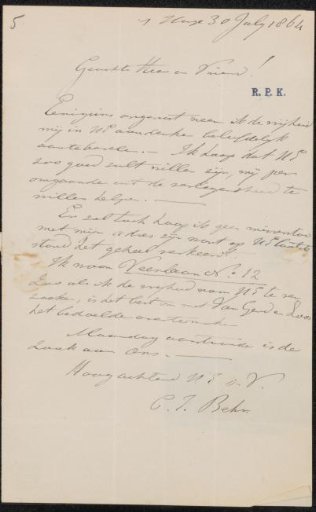 5
's Hage 30 July 1864
Geachte Heer en Vriend!
R. P. K.
Enigzins ongerust neem ik de vrijheid
mij in UE aandenken beleefdelijk
aantebevelen. — Ik hoop dat UE
zoo goed zult willen zijn, mij per
omgaande uit de verlegenheid te
willen helpen. —
Er zal toch hoop ik geen
met mijn adres zijn want op UE
stond het geheel verkeerd.
Ik woon Veerlaan No 12
Dus als ik de vrijheid van UE te
is het best om met Van Gend en Loos
het bedoelde
Maandag is de
aan ons. —
Hoogachtend UE
C. J. Behr